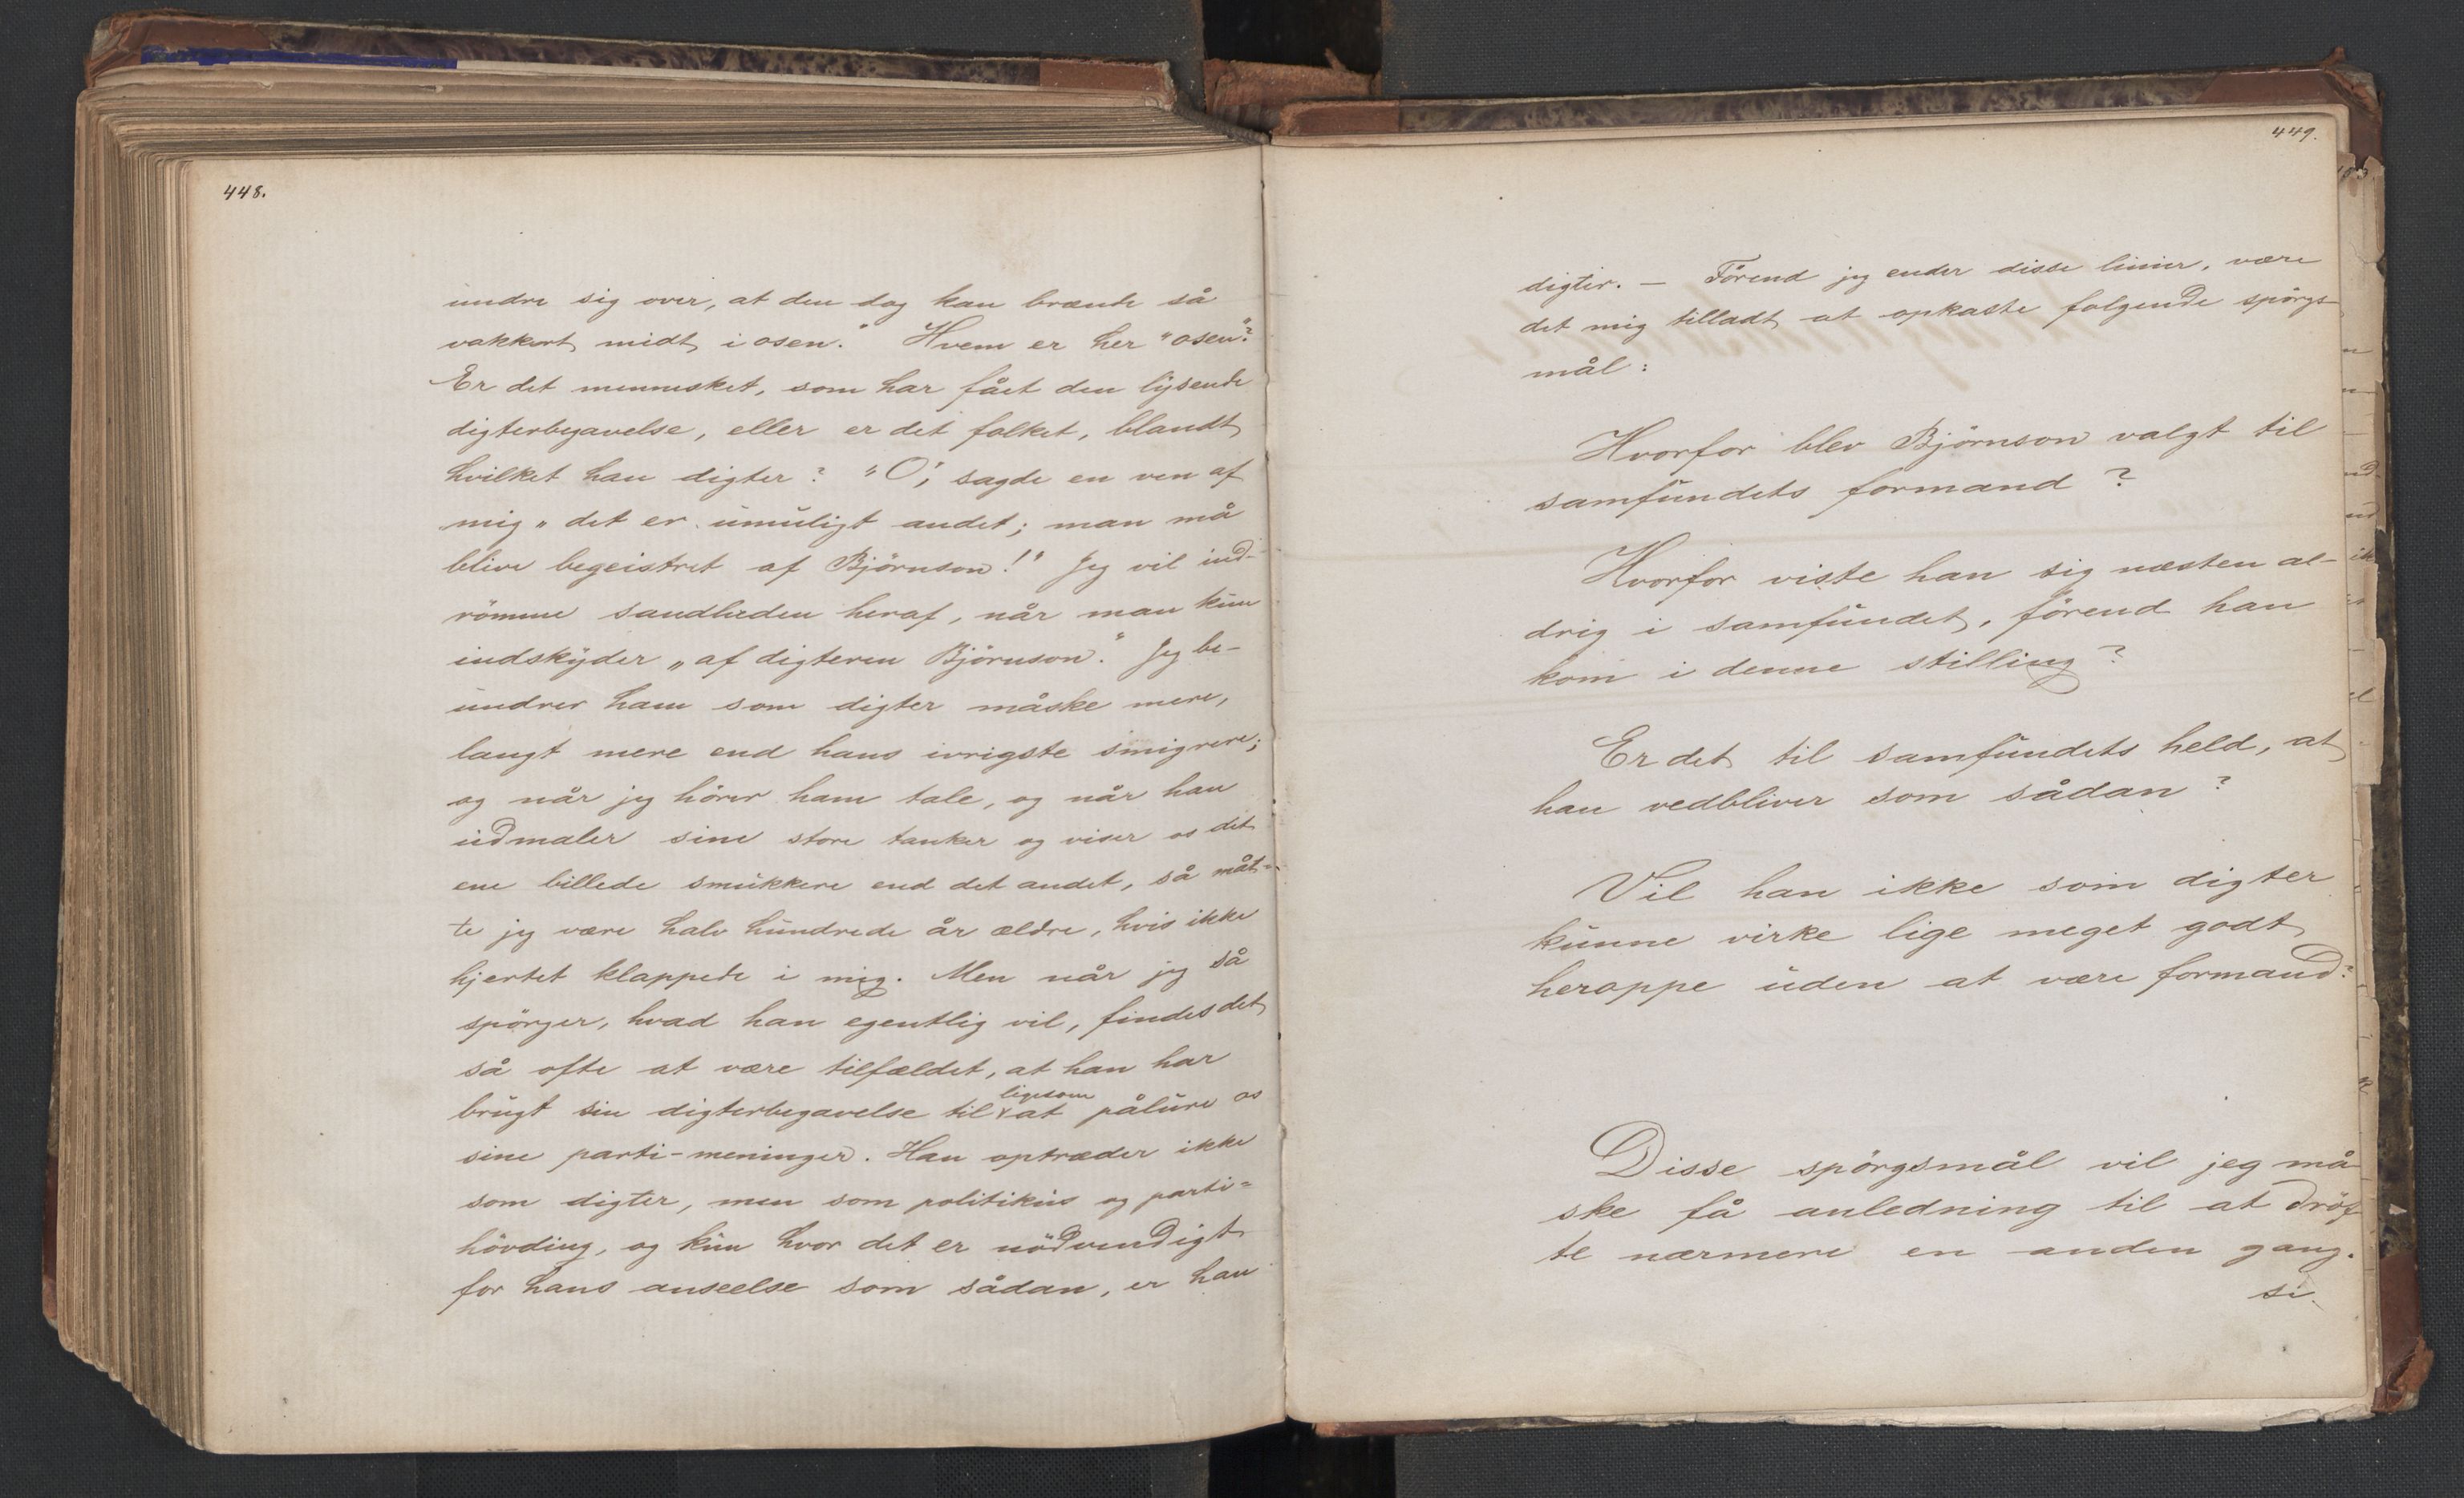 448.
undre sig over, at den dog kan brænde så
vakkert midt i osen." Hvem er her "osen"?
Er det mennesket, som har fået den lysende
digterbegavelse, eller er det folket, blandt
hvilket han digter? "O", sagde en ven af
mig „det er umuligt andet; man må
blive begeistret af Björnson!" Jeg vil ind-
römme sandheden heraf, når man kun
indskyder „af digteren Björnson". Jeg be-
undrer ham som digter måske mere,
langt mere end hans ivrigste smigrere;
og når jeg hörer ham tale, og når han
udmaler sine store tanker og viser os det
ene billede smukkere end det andet, så måt=
te jeg være halv hundrede år ældre, hvis ikke
hjertet klappede i mig. Men når jeg så
spörger, hvad han egentlig vil, findes det
så ofte at være tilfældet, at han har
brugt sin digterbegavelse til ligesom at pålure os
sine parti-meninger. Han optræder ikke
som digter, men som politikus og parti=
hövding, og kun hvor det er nödvendigt
for hans anseelse som sådan, er han
449.
digter. — Förend jeg ender disse linier, være
det mig tilladt at opkaste folgende spörgs-
mål:
Hvorfor blev Björnson valgt til
samfundets formand?
Hvorfor viste han sig næsten al-
drig i samfundet, förend han
kom i denne stilling?
Er det til samfundets held, at
han vedbliver som sådan?
Vil han ikke som digter
kunne virke lige meget godt
heroppe uden at være formand?
Disse spörgsmål vil jeg må-
ske få anledning til at dröf-
te nærmere en anden gang.
si.